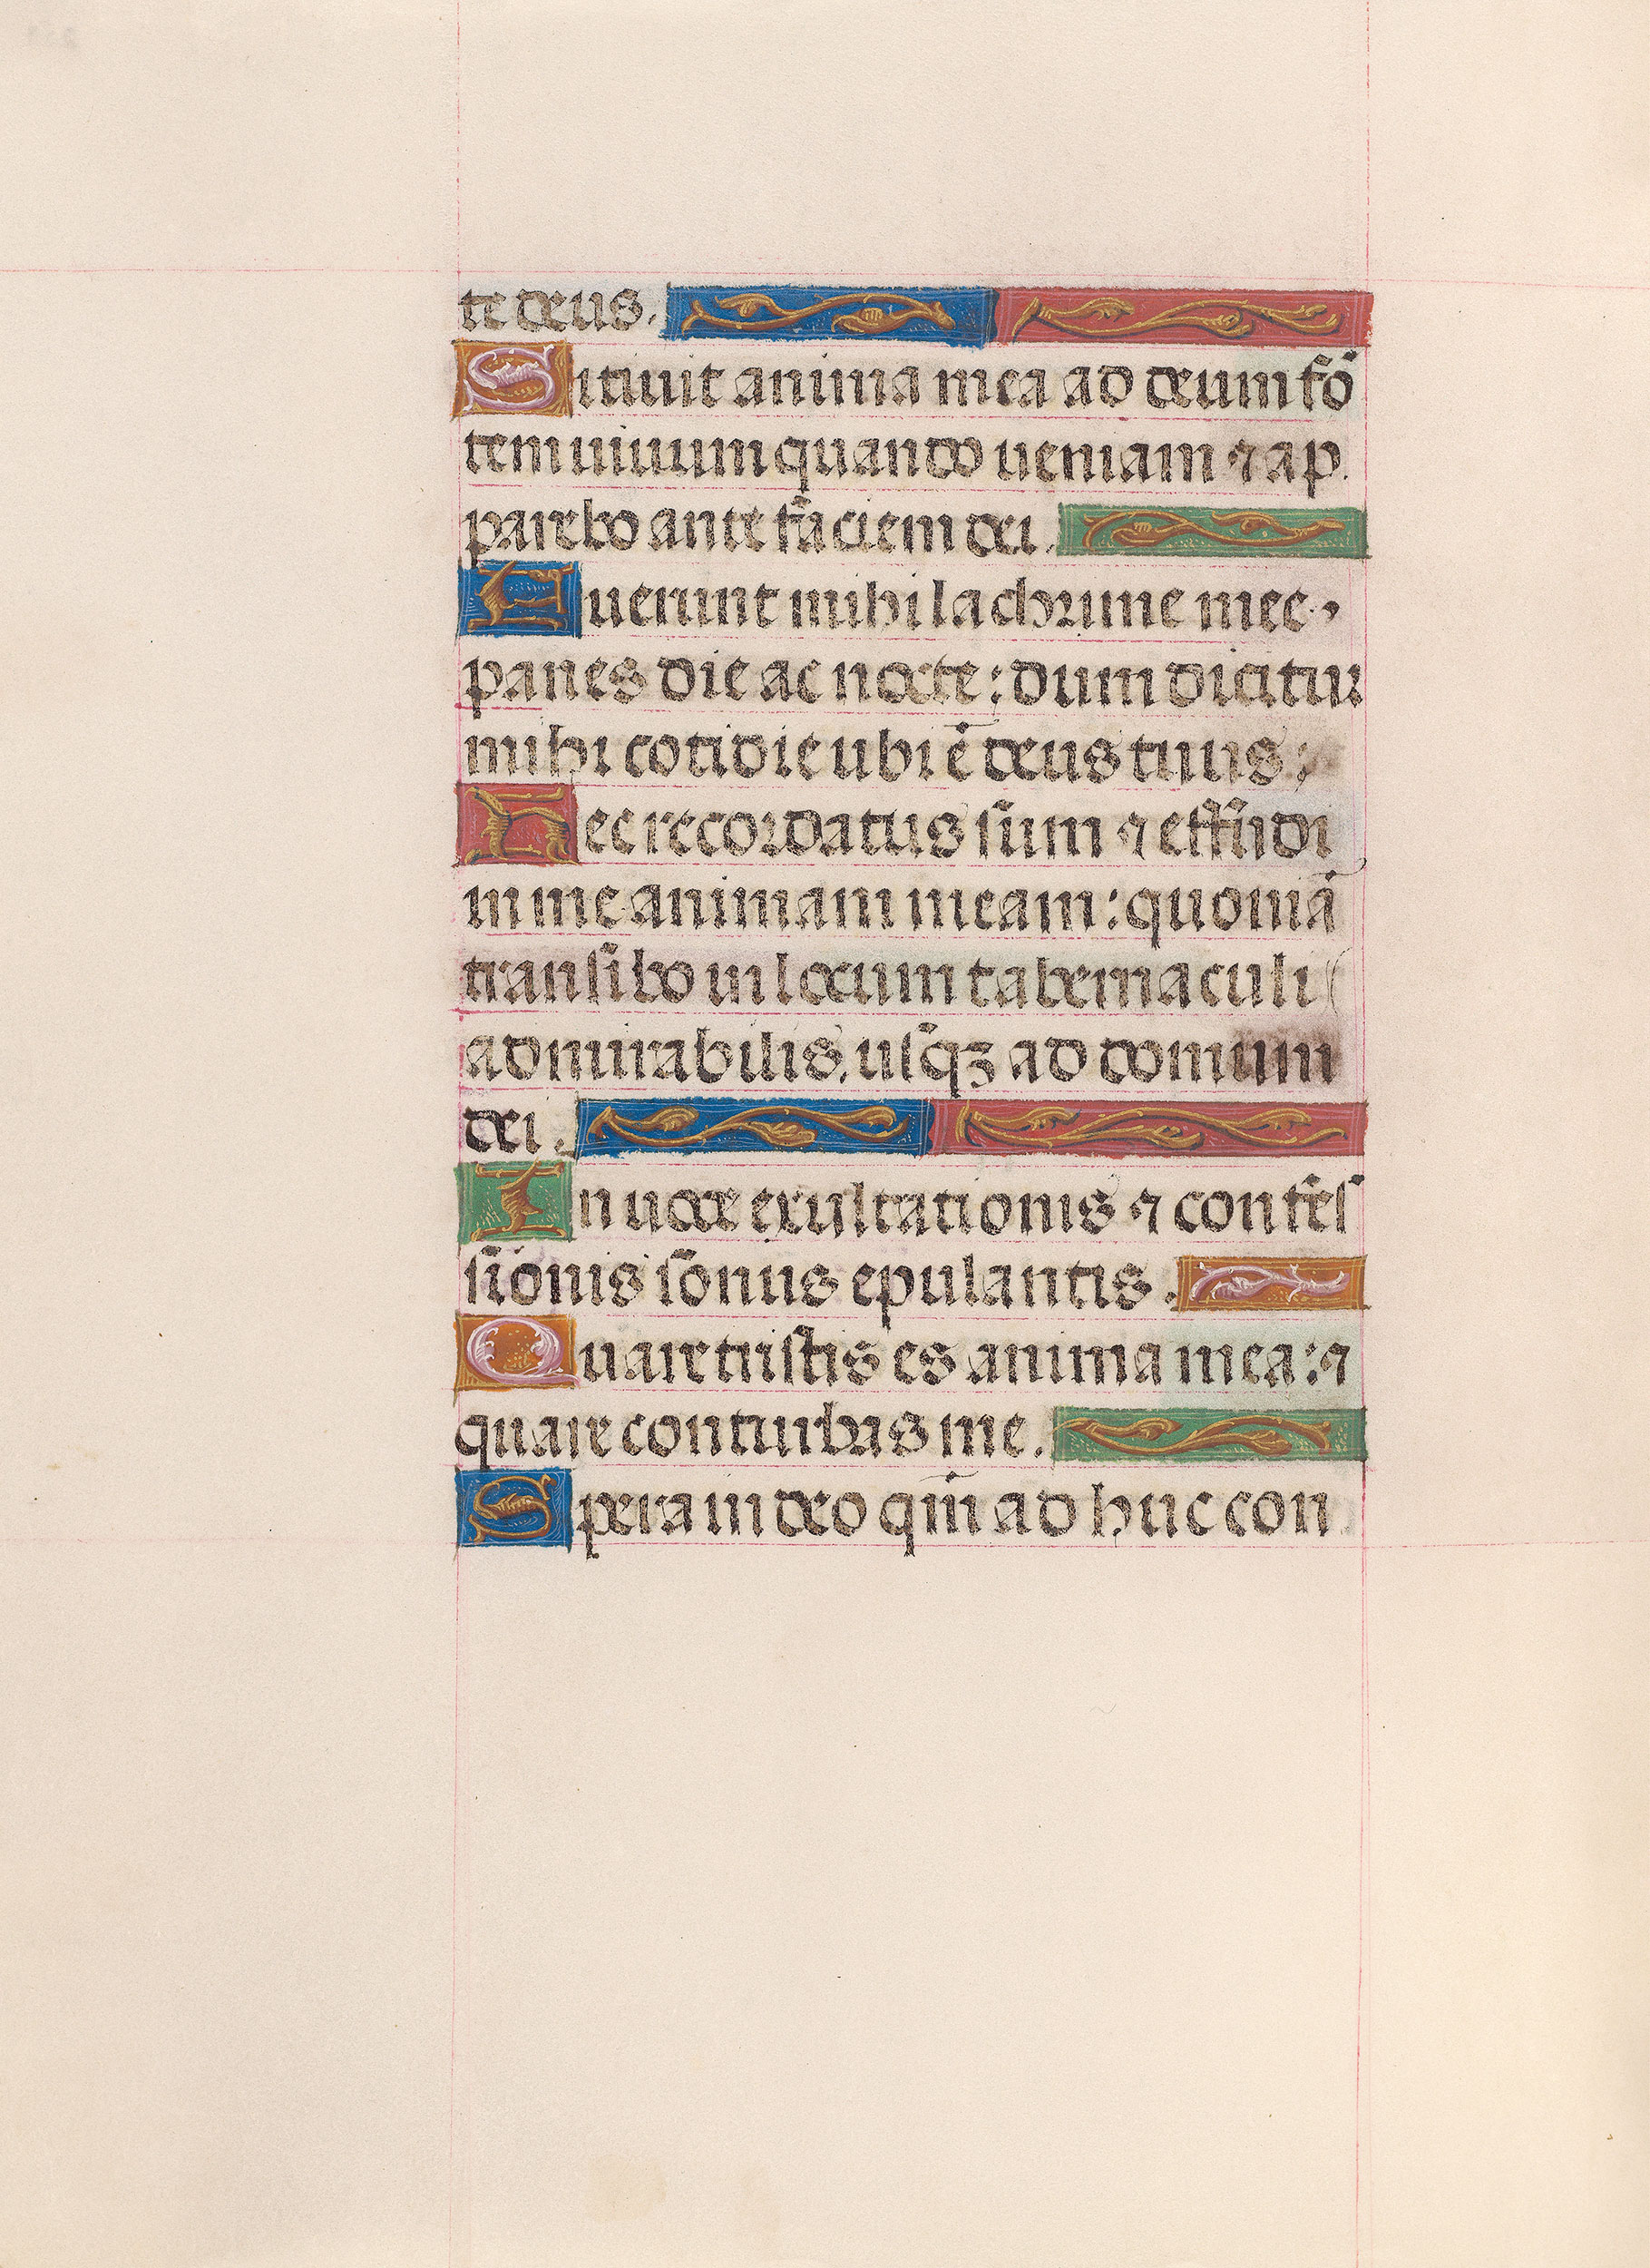 te deus.
Sitiuit anima mea ad deum fō
tem uiuum quando ueniam ⁊ ap
parebo ante faciem dei.
Fuerunt mihi lachrime mee,
panes die ac nocte: dum dicitur
mihi cotidie ubi ē deus tuus;
Hec recordatus sum ⁊ effudi
in me animam meam: quoniā
transibo in locum tabernaculi
admirabilis, usqꝫ ad domum
dei.
In uoce exultationis ⁊ confes
sionis sonus epulantis.
Quare tristis es anima mea: ⁊
quare conturbas me.
Spera in deo qm̄ ad huc con